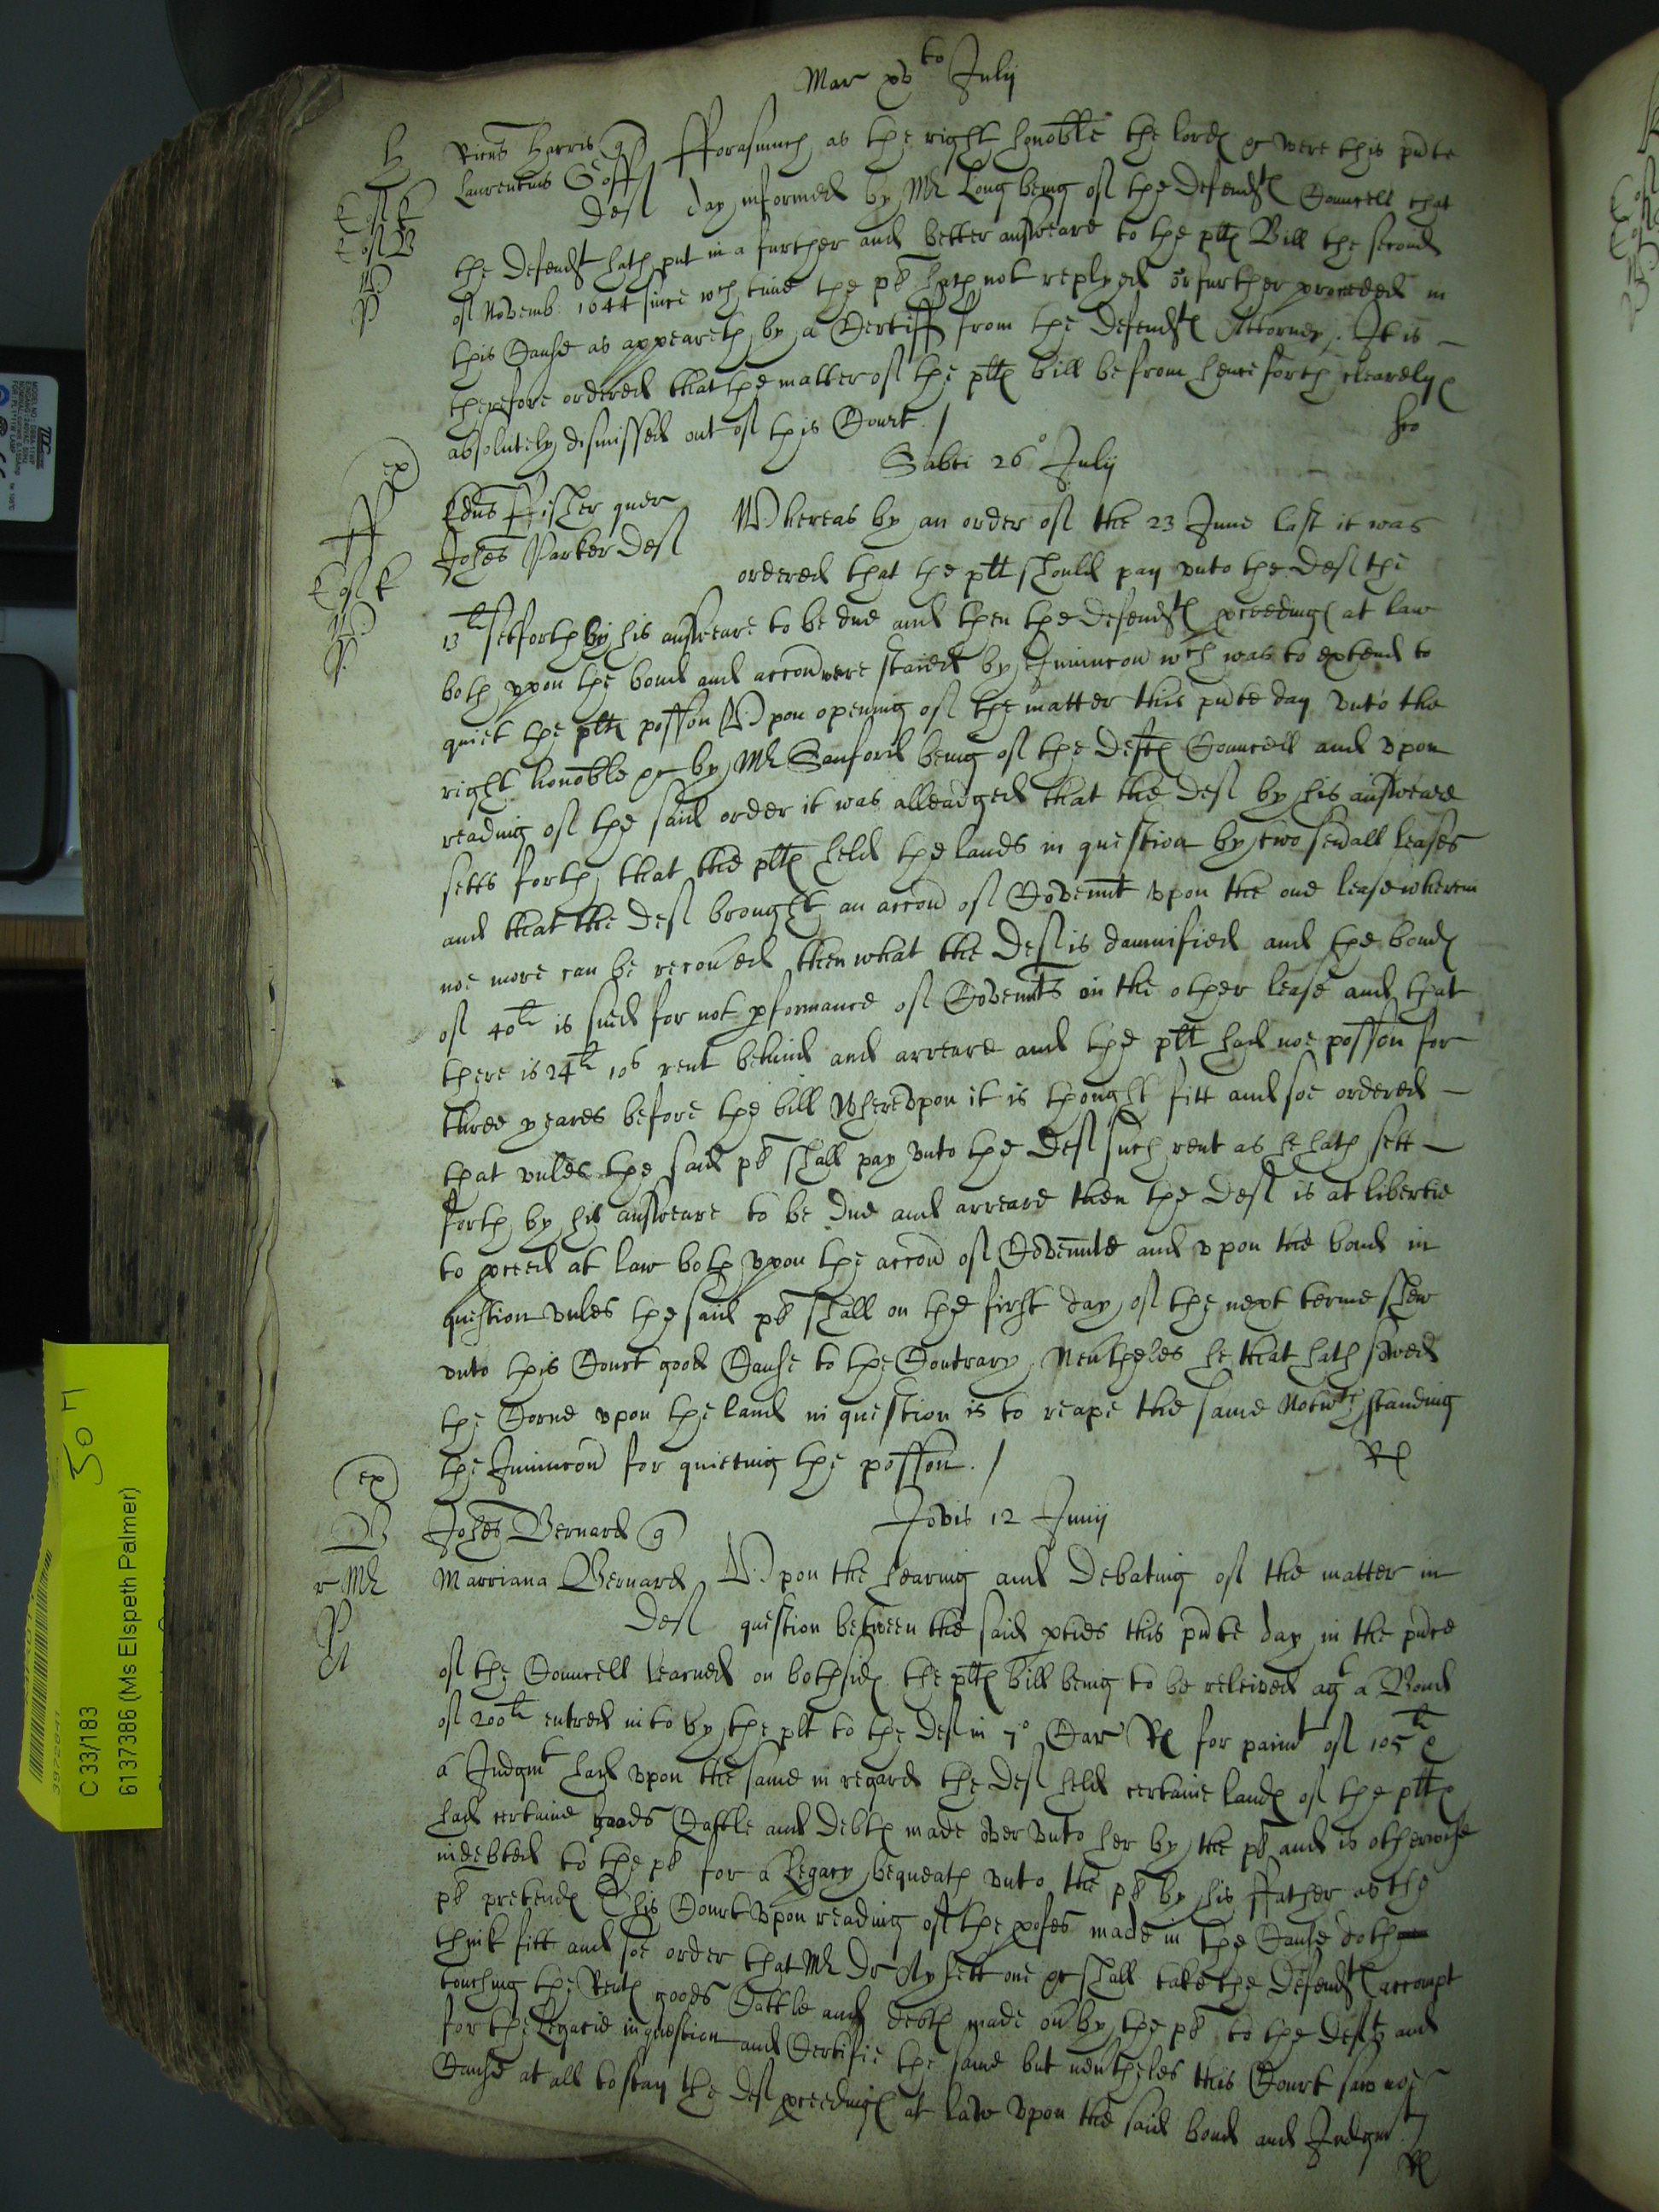 Mar xvto July
H
Ricus Harris q
Laurentius Goff
Def
fforasmuch as the right honoble the lords &c were this pnte
day informed by Mr Long being of the Defendts Councell that
the Defendt hath put in a further and better answeare to the plts Bill the second
of Novemb. 1644 since wch time the pt hath not replyed or further proceeded in
this Cause as appeareth by a Certiff from the Defendts Attorney. It is
therefore ordered that the matter of the plts bill be from henceforth clearely &
absolutely dismissed out of this Court /
Sabti 26o July
ex
ff
Edus ffisher quer
Johes Parker Def
Whereas by an order of the 23 June last it was
ordered that the plt should pay unto the Def the
13li setforth by his answeare to be due and then the defendts pceedings at law
both upon the bond and accon were staied by Iniuncon wch was to extend to
quiet the plts posson Upon opening of the matter this pnte day unto the
right honoble &c by Mr Sanford being of the Defts Councell and upon
reading of the said order it was alleadged that the Def by his answeare
setts forth that the plts held the lands in question by two sevall leases
and that the Def brought an accon of Covennt upon the one lease wherein
noe more can be recoved then what the Def is damnified and the bond
of 40li is sued for not pformance of Covennts in the other lease and that
there is 24li 10s rent behind and arreare and the plt had noe posson for
three yeares before the bill Whereupon it is thought fitt and soe ordered
that unles the said pt shall pay unto the Def such rent as he hath sett
forth by his answeare to be due and arreare then the Def is at libertie
to pceed at law both upon the accon of Covennte and upon the bond in
question unles the said pt shall on the first day of the next terme shew
unto this Court good Cause to the Contrary Nevtheles he that hath sowed
the Corne upon the land in question is to reape the same Notwthstanding
the Iniuncon for quieting the posson. /
ex
B
Jovis 12 Junij
Johes Bernard q
Marriana Bernard
Def
Upon the hearing and Debating of the matter in
question between the said pties this pnte day in the pnce
of the Councell Learned on both sides the plts bill being to be releived agt a Bond
of 200li entred into by the plt to the Def in 7o Car Rs for paimt of 105li &
a Judgmt had upon the same in regard the Def held certaine lands of the plts
had certaine goods Cattle and Debts made over unto her by the pt and is otherwise
indebted to the pt for a Legacy bequeath unto the pt by his ffather as the
pt pretends This Court upon reading of the pofes made in the Cause doth
think fitt and soe order that Mr Dr Aylett one &c shall take the Defendts accompt
touching the Rents goods Cattle and debts made ov by the pt to the Deft and
for the Legacie in question and Certifie the same but nevtheles this Court saw noe
Cause at all to stay the Def pceedings at Law upon the said bond and Judgmt /
50
C 33/183
6137386 (Ms Elspeth Palmer)